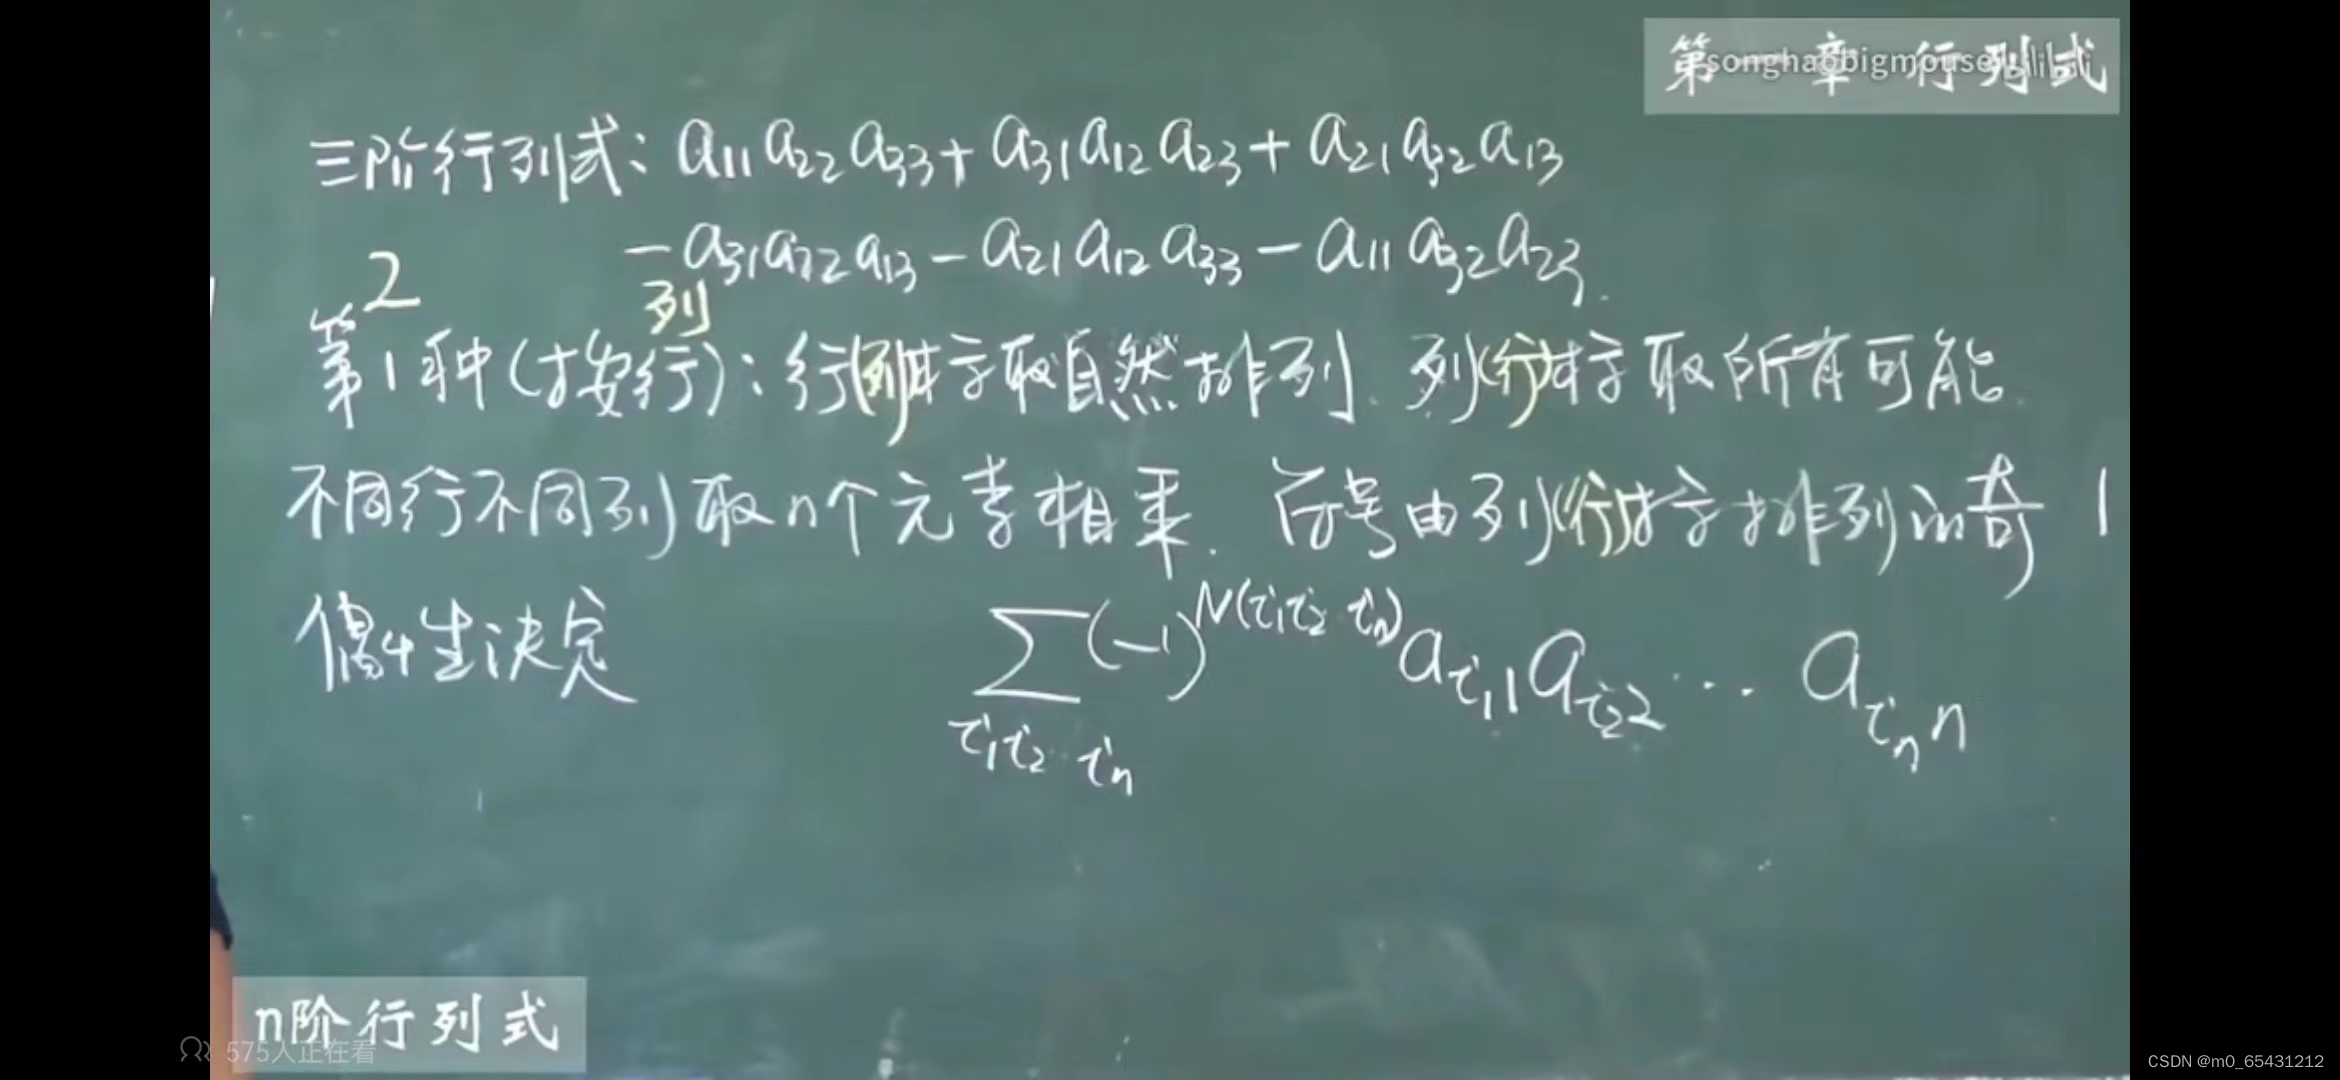 第一章 行列式
songhaobigmouse bilibili
三阶行列式: a₁₁a₂₂a₃₃+a₃₁a₁₂a₂₃+a₂₁a₃₂a₁₃
-a₃₁a₂₂a₁₃-a₂₁a₁₂a₃₃-a₁₁a₃₂a₂₃.
2 列
第1种(按行): 行(列)标取自然排列. 列(行)标取所有可能.
不同行不同列取n个元素相乘. 符号由列(行)标排列的奇
偶性决定 ∑(-1)^N(i₁i₂…iₙ) a_{i₁1} a_{i₂2} … a_{iₙn}
i₁i₂…iₙ
n阶行列式
575人正在看
CSDN @m0_65431212